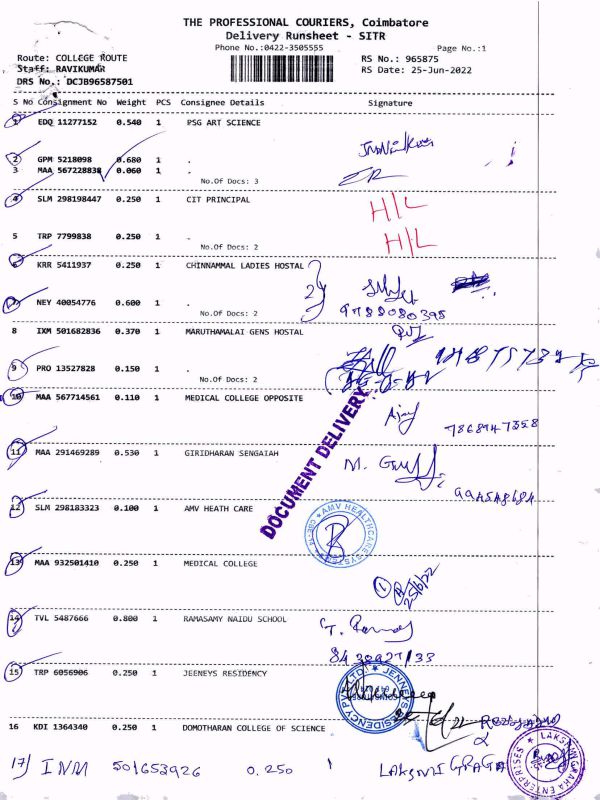 THE PROFESSIONAL COURIERS, Coimbatore
Delivery Runsheet - SITR
Phone No.:0422-3505555 Page No.:1
Route: COLLEGE ROUTE RS No.: 965875
Staff: RAVIKUMAR RS Date: 25-Jun-2022
DRS No.: DCJB96587501
S No Consignment No Weight PCS Consignee Details Signature
1 EDQ 11277152 0.540 1 PSG ART SCIENCE
2 GPM 5218098 0.680 1 .
3 MAA 567228838 0.060 1 .
No.Of Docs: 3
4 SLM 298198447 0.250 1 CIT PRINCIPAL
H/L
5 TRP 7799838 0.250 1 .
H/L
No.Of Docs: 2
6 KRR 5411937 0.250 1 CHINNAMMAL LADIES HOSTAL
2
7 NEY 40054776 0.600 1 .
9788080395
No.Of Docs: 2
8 IXM 501682836 0.370 1 MARUTHAMALAI GENS HOSTAL
9 PRO 13527828 0.150 1 .
No.Of Docs: 2
10 MAA 567714561 0.110 1 MEDICAL COLLEGE OPPOSITE
Ajay
7868947358
DOCUMENT DELIVERY
11 MAA 291469289 0.530 1 GIRIDHARAN SENGAIAH
M.
12 SLM 298183323 0.100 1 AMV HEATH CARE
AMV HEALTHCARE SYSTEMS
13 MAA 932501410 0.250 1 MEDICAL COLLEGE
1
25/6/22
14 TVL 5487666 0.800 1 RAMASAMY NAIDU SCHOOL
T.
15 TRP 6056906 0.250 1 JEENEYS RESIDENCY
JENNEYS RESIDENCY PVT LTD
16 KDI 1364340 0.250 1 DOMOTHARAN COLLEGE OF SCIENCE
17) INM 501652926 0.250 1 LAKSMI GPAGA
LAKSHMI GRAHA ENTERPRISES